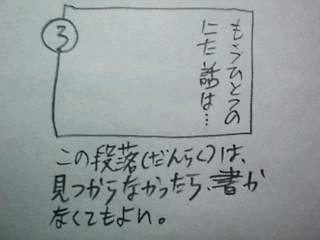 ③
もうひとつの
にた話は…
この段落(だんらく)は、
見つからなかったら、書か
なくてもよい。